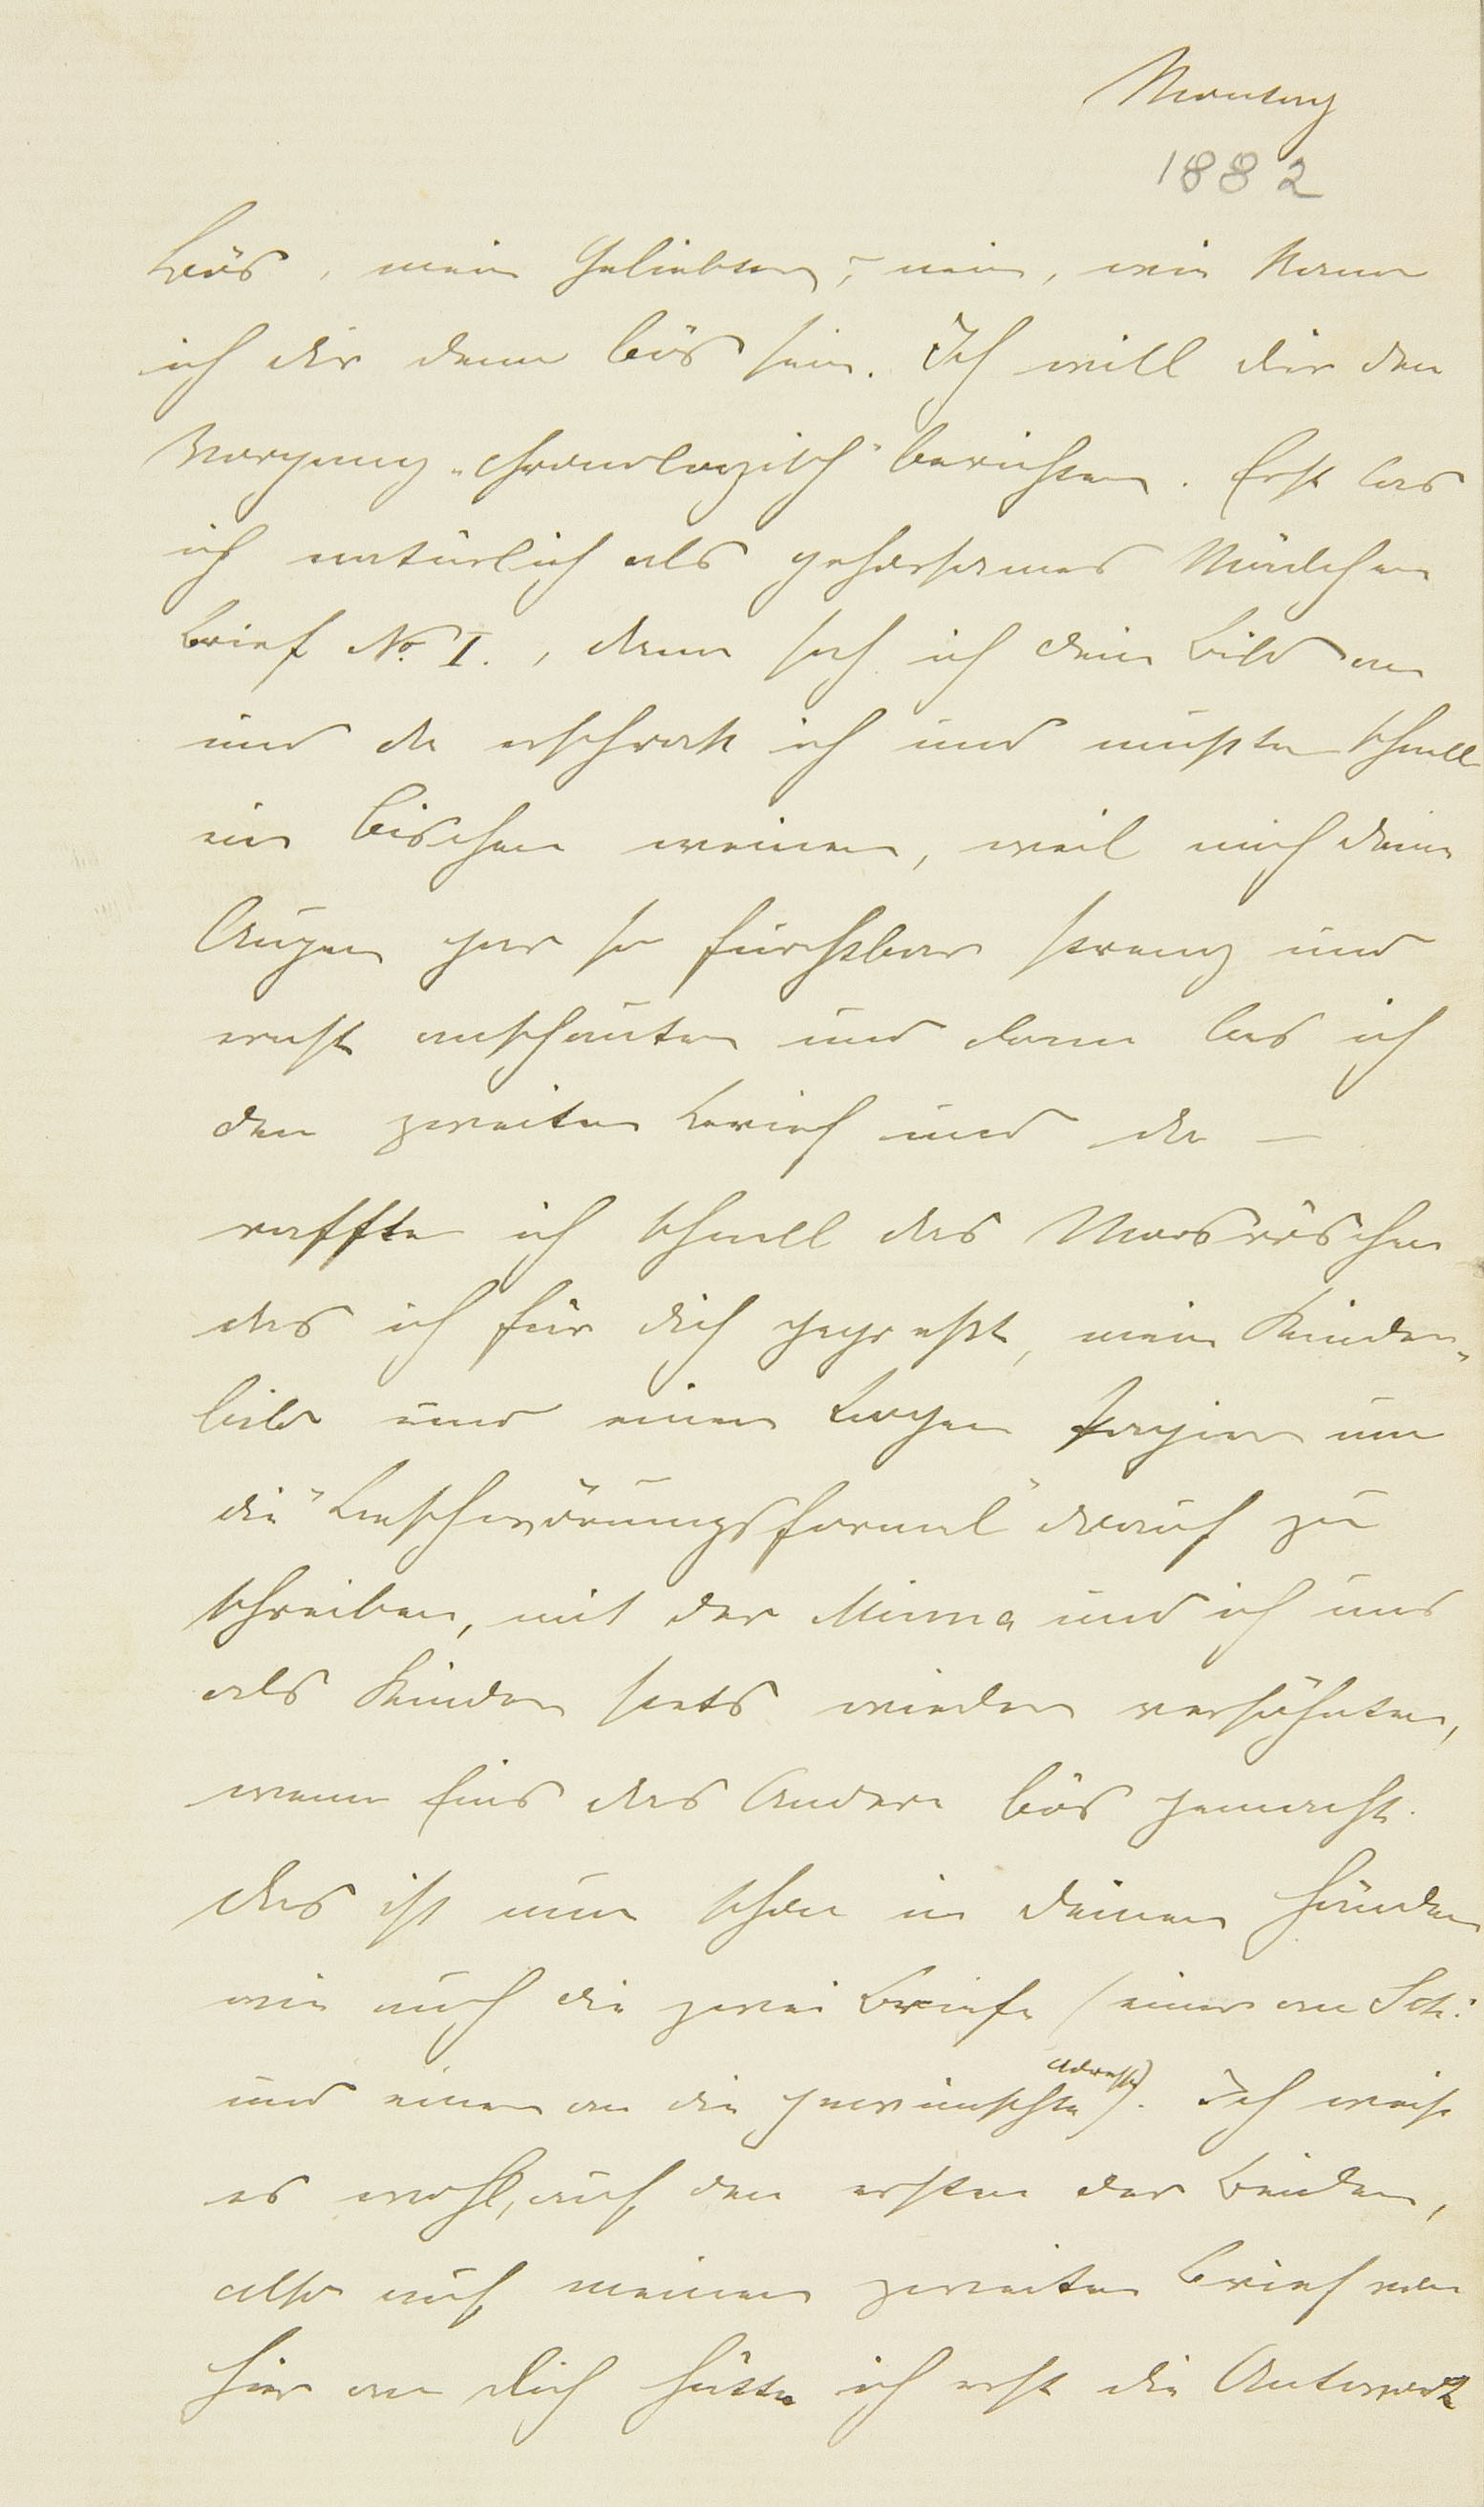 Montag
1882
Bös, mein Geliebter, – nein, wie kann
ich dir denn bös sein. Ich will dir den
Vorgang „chronologisch" berichten. Erst las
ich natürlich als gehorsames Mädchen
Brief No. I., dann sah ich dein Bild an
und da erschrak ich und mußte schnell
ein bischen weinen, weil mich deine
Augen gar so furchtbar streng und
ernst anschauten und dann las ich
den zweiten Brief und da –
raffte ich schnell das Moosröschen
das ich für dich gepreßt, mein Kinder-
bild und einen Bogen Papier um
die "Beschwörungsformel" darauf zu
schreiben, mit der Minna und ich uns
als Kinder stets wieder versöhnten,
wenn Eins das Andere bös gemacht.
das ist nun schon in deinen Händen
wie auch die zwei Briefe (einer an Sch:
und einer an die gewünschte Adresse). Ich weiß
es wohl, auf den ersten der Beiden,
also auf meinen zweiten Brief von
hier an dich hätte ich erst die Antwort